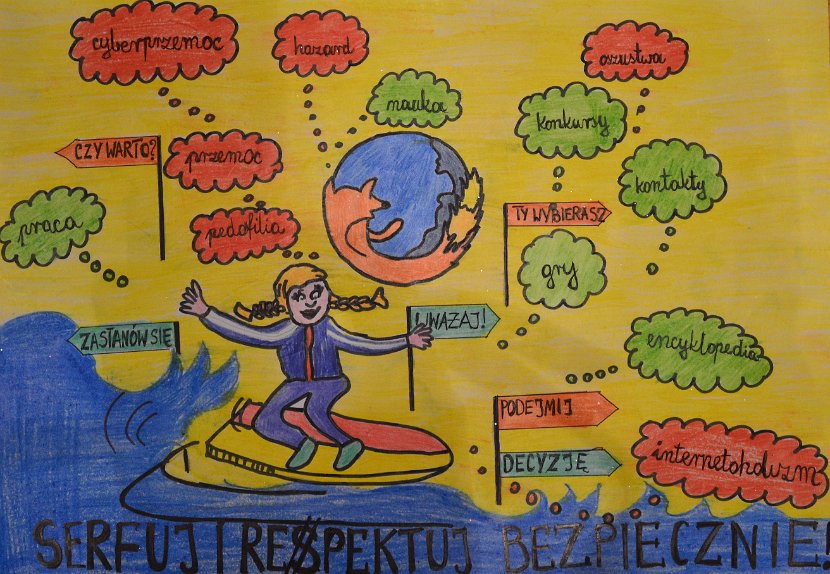 cyberprzemoc
hazard
oszustwa
nauka
konkursy
CZY WARTO?
przemoc
kontakty
praca
pedofilia
TY WYBIERASZ
gry
ZASTANÓW SIĘ
UWAŻAJ!
encyklopedia
PODEJMIJ
DECYZJĘ
internetoholizm
SERFUJ I RESPEKTUJ BEZPIECZNIE!